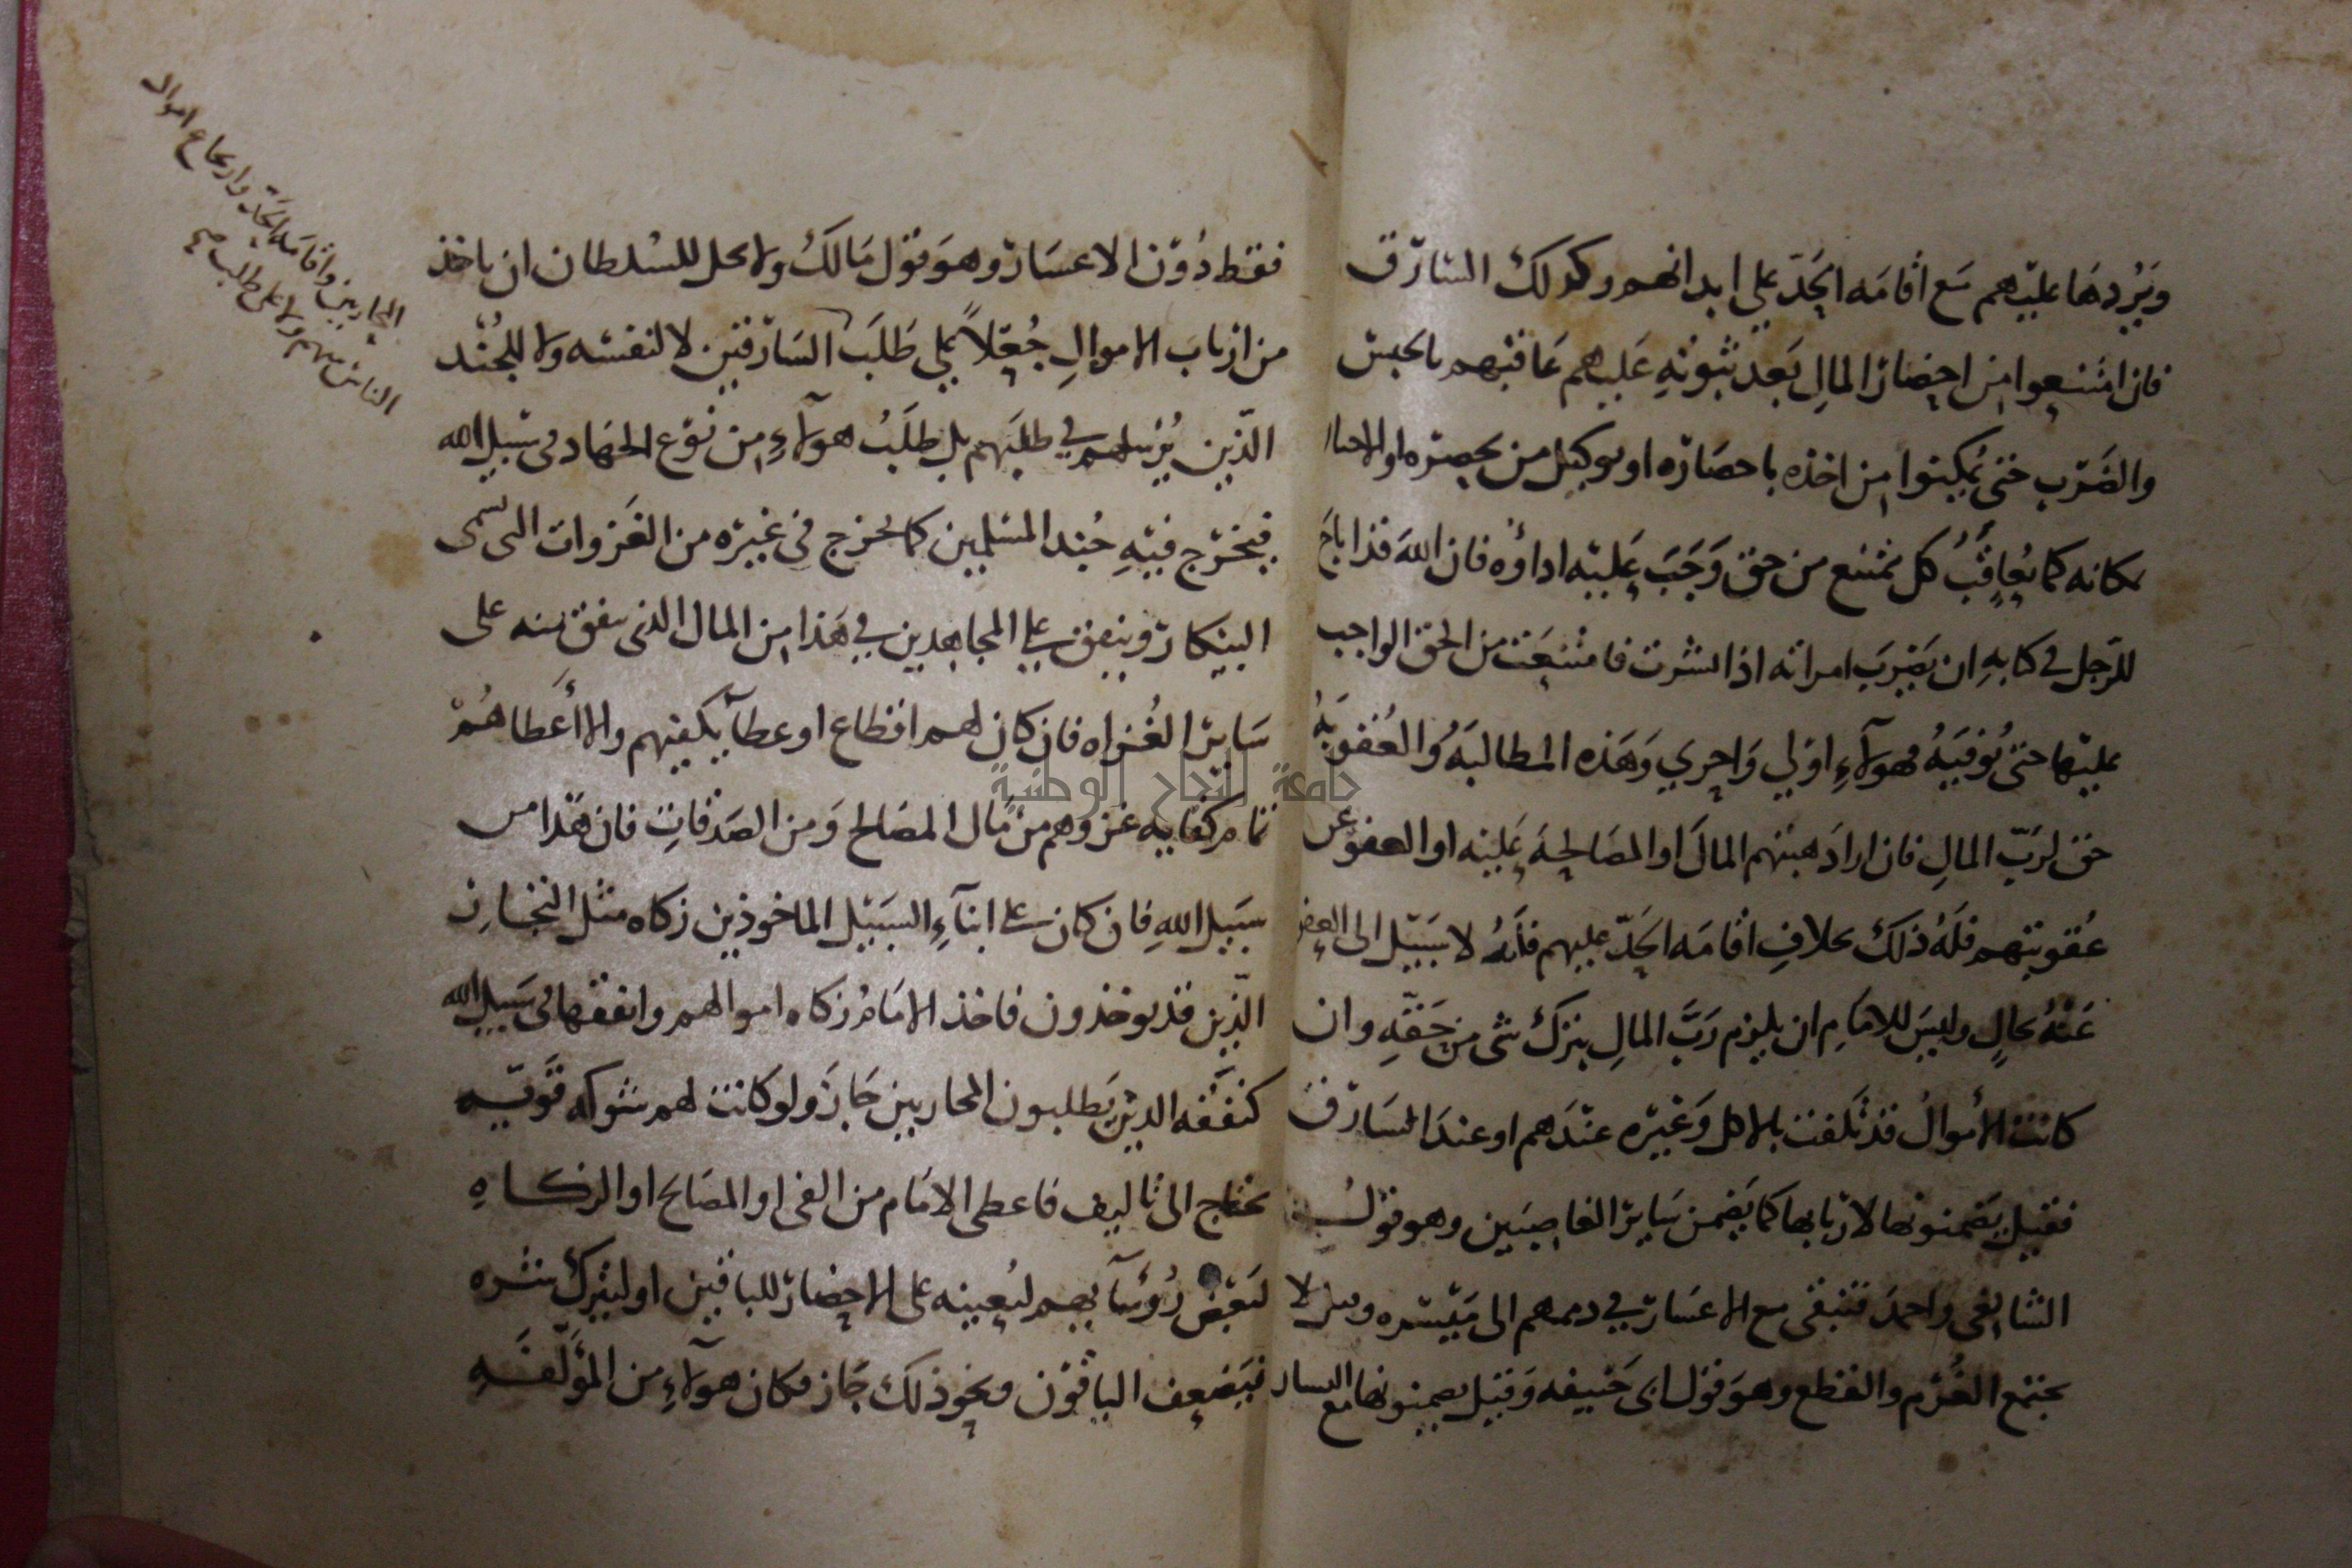 ويردها عليهم مع اقامه الحد على ابدانهم وكذلك السارق
فان امتنعوا من احضار المال بعد ثبوته عليهم عاقبهم بالحبس
والضرب حتى يمكنوا من اخذه باحضاره او بوكيل من يحضره او الاخبار
بمكانه كما يعاقب كل ممتنع من حق وجب عليه اداؤه فان الله قد اباح
للرجل في كتابه ان يضرب امراته اذا نشزت فامتنعت من الحق الواجب
عليها حتى توفيه فهولاء اولي واحري وهذه المطالبة والعقوبة
حق لرب المال فان اراد هبتهم المال او المصالحة عليه او العفو عن
عقوبتهم فله ذلك بخلاف اقامه الحد عليهم فانه لا سبيل الى العفو
عنه بحال وليس للامام ان يلزم رب المال بترك شي من حقه وان
كانت الاموال قد تلفت بالاكل وغيره عندهم او عند السارق
فقيل يضمنونها لاربابها كما يضمن ساير الغاصبين وهو قول
الشافعي واحمد فتبقى مع الاعسار في ذممهم الى ميسره وقيل لا
يجتمع الغرم والقطع وهو قول ابي حنيفه وقيل يضمنونها مع اليسار
فقط دون الاعسار وهو قول مالك ولا يحل للسلطان ان ياخذ
من ارباب الاموال جعلا على طلب السارقين لا لنفسه ولا للجند
الذين يرسلهم في طلبهم بل طلب هولاء من نوع الجهاد في سبيل الله
فيخرج فيه جند المسلمين كما يخرج في غيره من الغزوات التي تسمى
البيكار وينفق على المجاهدين في هذا من المال الذي ينفق منه على
ساير الغزاه فان كان لهم اقطاع او عطا يكفيهم والا اعطاهم
تمام كفايه غزوهم من مال المصالح ومن الصدقات فان هذا من
سبيل الله فان كان على ابناء السبيل الماخوذين زكاه مثل التجار
الذين قد يوخذون فاخذ الامام زكاه اموالهم وانفقها في سبيل الله
كنفقه الذين يطلبون المحاربين جاز ولو كانت لهم شوكه قويه
تحتاج الى تاليف فاعطى الامام من الفى او المصالح او الزكاه
لبعض رؤسآيهم ليعينه على الاحضار للباقين او ليترك شره
فيضعف الباقون ونحو ذلك جاز وكان هولاء من المؤلفه
المحاربين واقامه الحد وارجاع اموال
الناس منهم ولا على طلب
جامعة النجاح الوطنية